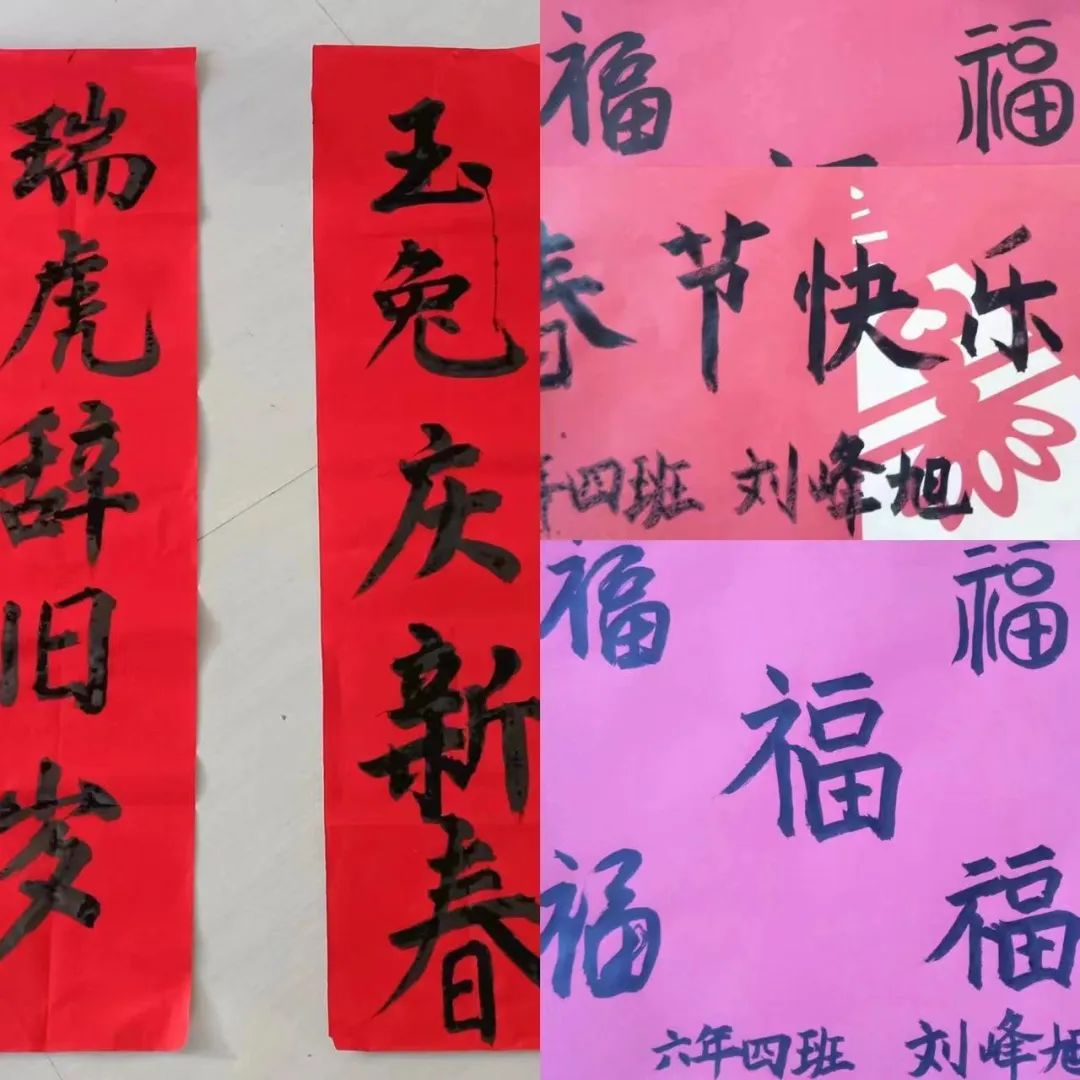 瑞虎辞旧岁
玉兔庆新春
福 福
春节快乐
年四班 刘峰旭
福 福
福
福 福
六年四班 刘峰旭